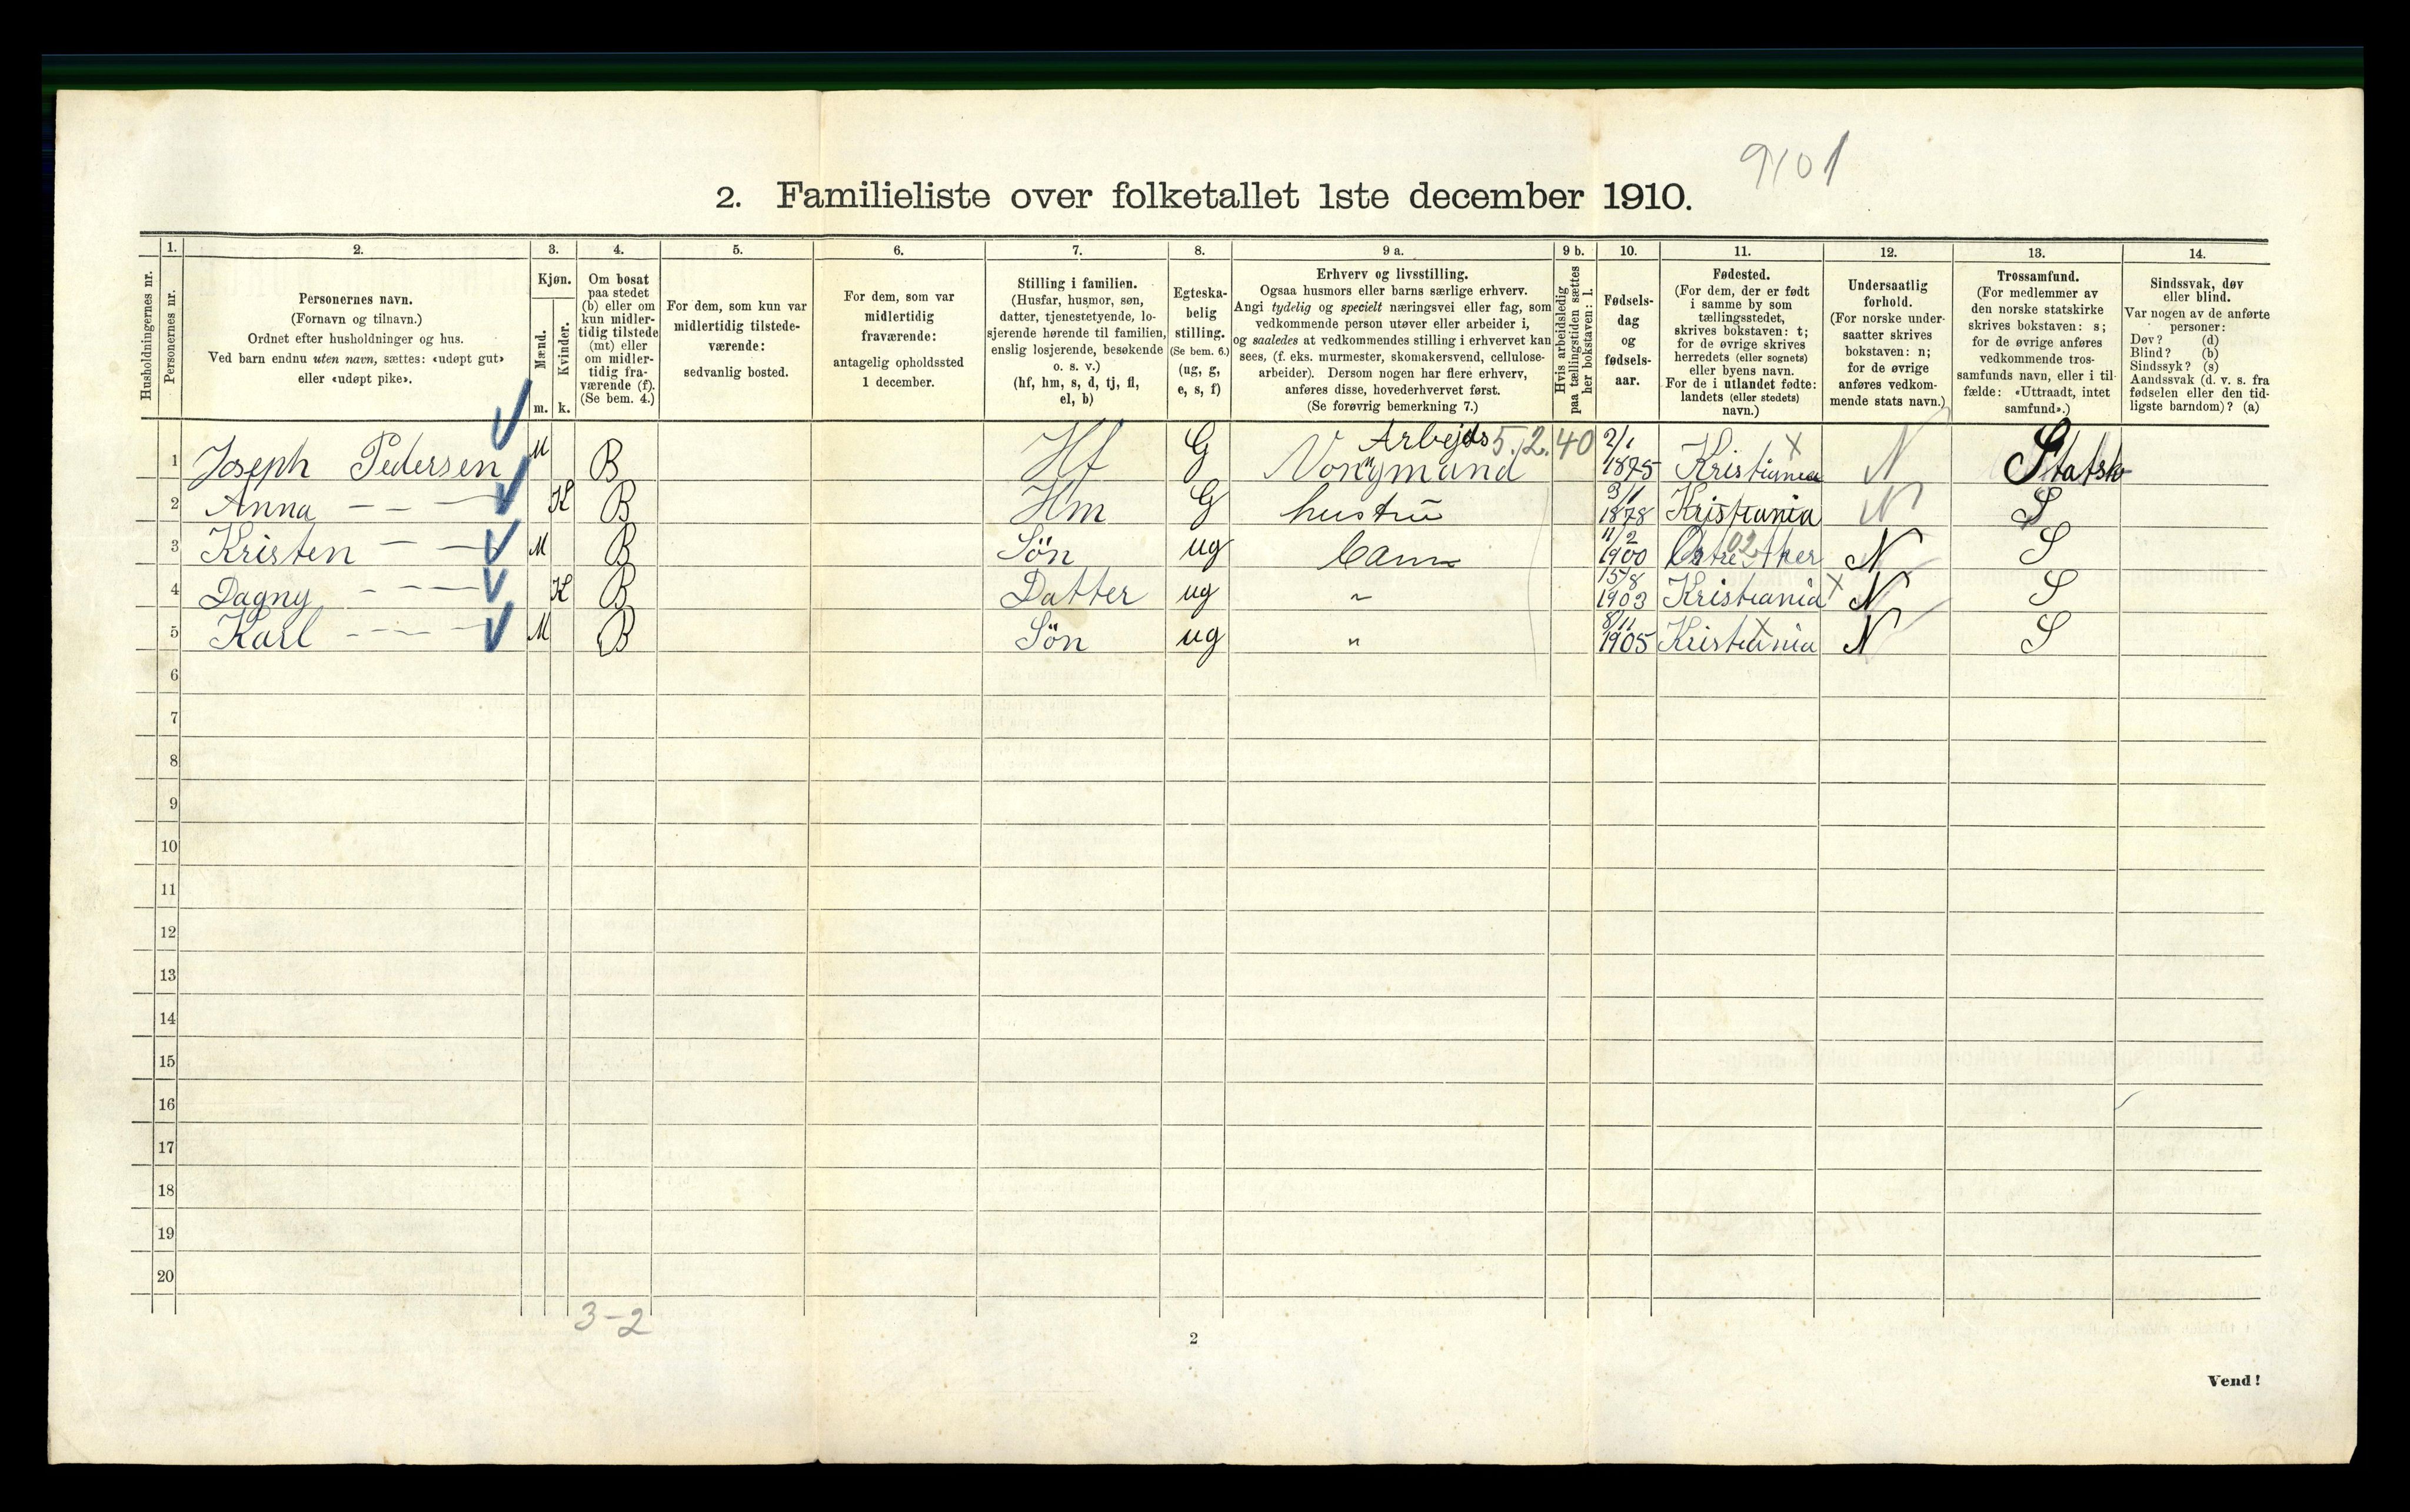 9101
2. Familieliste over folketallet 1ste december 1910.
Husholdningernes nr.
1.
Personernes nr.
2.
Personernes navn.
(Fornavn og tilnavn.)
Ordnet efter husholdninger og hus.
Ved barn endnu uten navn, sættes: «udøpt gut»
eller «udøpt pike».
3.
Kjøn.
Mænd.
Kvinder.
m. k.
4.
Om bosat
paa stedet
(b) eller om
kun midler-
tidig tilstede
(mt) eller
om midler-
tidig fra-
værende (f).
(Se bem. 4.)
5.
For dem, som kun var
midlertidig tilstede-
værende:
sedvanlig bosted.
6.
For dem, som var
midlertidig
fraværende:
antagelig opholdssted
1 december.
7.
Stilling i familien.
(Husfar, husmor, søn,
datter, tjenestetyende, lo-
sjerende hørende til familien,
enslig losjerende, besøkende
o. s. v.)
(hf, hm, s, d, tj, fl,
el, b)
8.
Egteska-
belig
stilling.
(Se bem. 6.)
(ug, g,
e, s, f)
9 a.
Erhverv og livsstilling.
Ogsaa husmors eller barns særlige erhverv.
Angi tydelig og specielt næringsvei eller fag, som
vedkommende person utøver eller arbeider i,
og saaledes at vedkommendes stilling i erhvervet kan
sees, (f. eks. murmester, skomakersvend, cellulose-
arbeider). Dersom nogen har flere erhverv,
anføres disse, hovederhvervet først.
(Se forøvrig bemerkning 7.)
9 b.
Hvis arbeidsledig
paa tællingstiden sættes
her bokstaven: l.
10.
Fødsels-
dag
og
fødsels-
aar.
11.
Fødested.
(For dem, der er født
i samme by som
tællingsstedet,
skrives bokstaven: t;
for de øvrige skrives
herredets (eller sognets)
eller byens navn.
For de i utlandet fødte:
landets (eller stedets)
navn.)
12.
Undersaatlig
forhold.
(For norske under-
saatter skrives
bokstaven: n;
for de øvrige
anføres vedkom-
mende stats navn.)
13.
Trossamfund.
(For medlemmer av
den norske statskirke
skrives bokstaven: s;
for de øvrige anføres
vedkommende tros-
samfunds navn, eller i til-
fælde: «Uttraadt, intet
samfund».)
14.
Sindssvak, døv
eller blind.
Var nogen av de anførte
personer:
Døv? (d)
Blind? (b)
Sindssyk? (s)
Aandssvak (d. v. s. fra
fødselen eller den tid-
ligste barndom)? (a)
1 Joseph Pedersen M B Hf G Arbejds 5.12.40 2/1 1875 Kristiania x N Statsk
2 Anna - - - K B Hm G hustrü 3/1 1878 Kristiania N S
3 Kristen - - M B Sön ug 11/2 1900 Østre Aker 02 N S
4 Dagny - - - K B Datter ug " 15/8 1903 Kristiania x N S
5 Karl - - - M B Sön ug " 8/11 1905 Kristiania x N S
6
7
8
9
10
11
12
13
14
15
16
17
18
19
20
3-2
2
Vend!